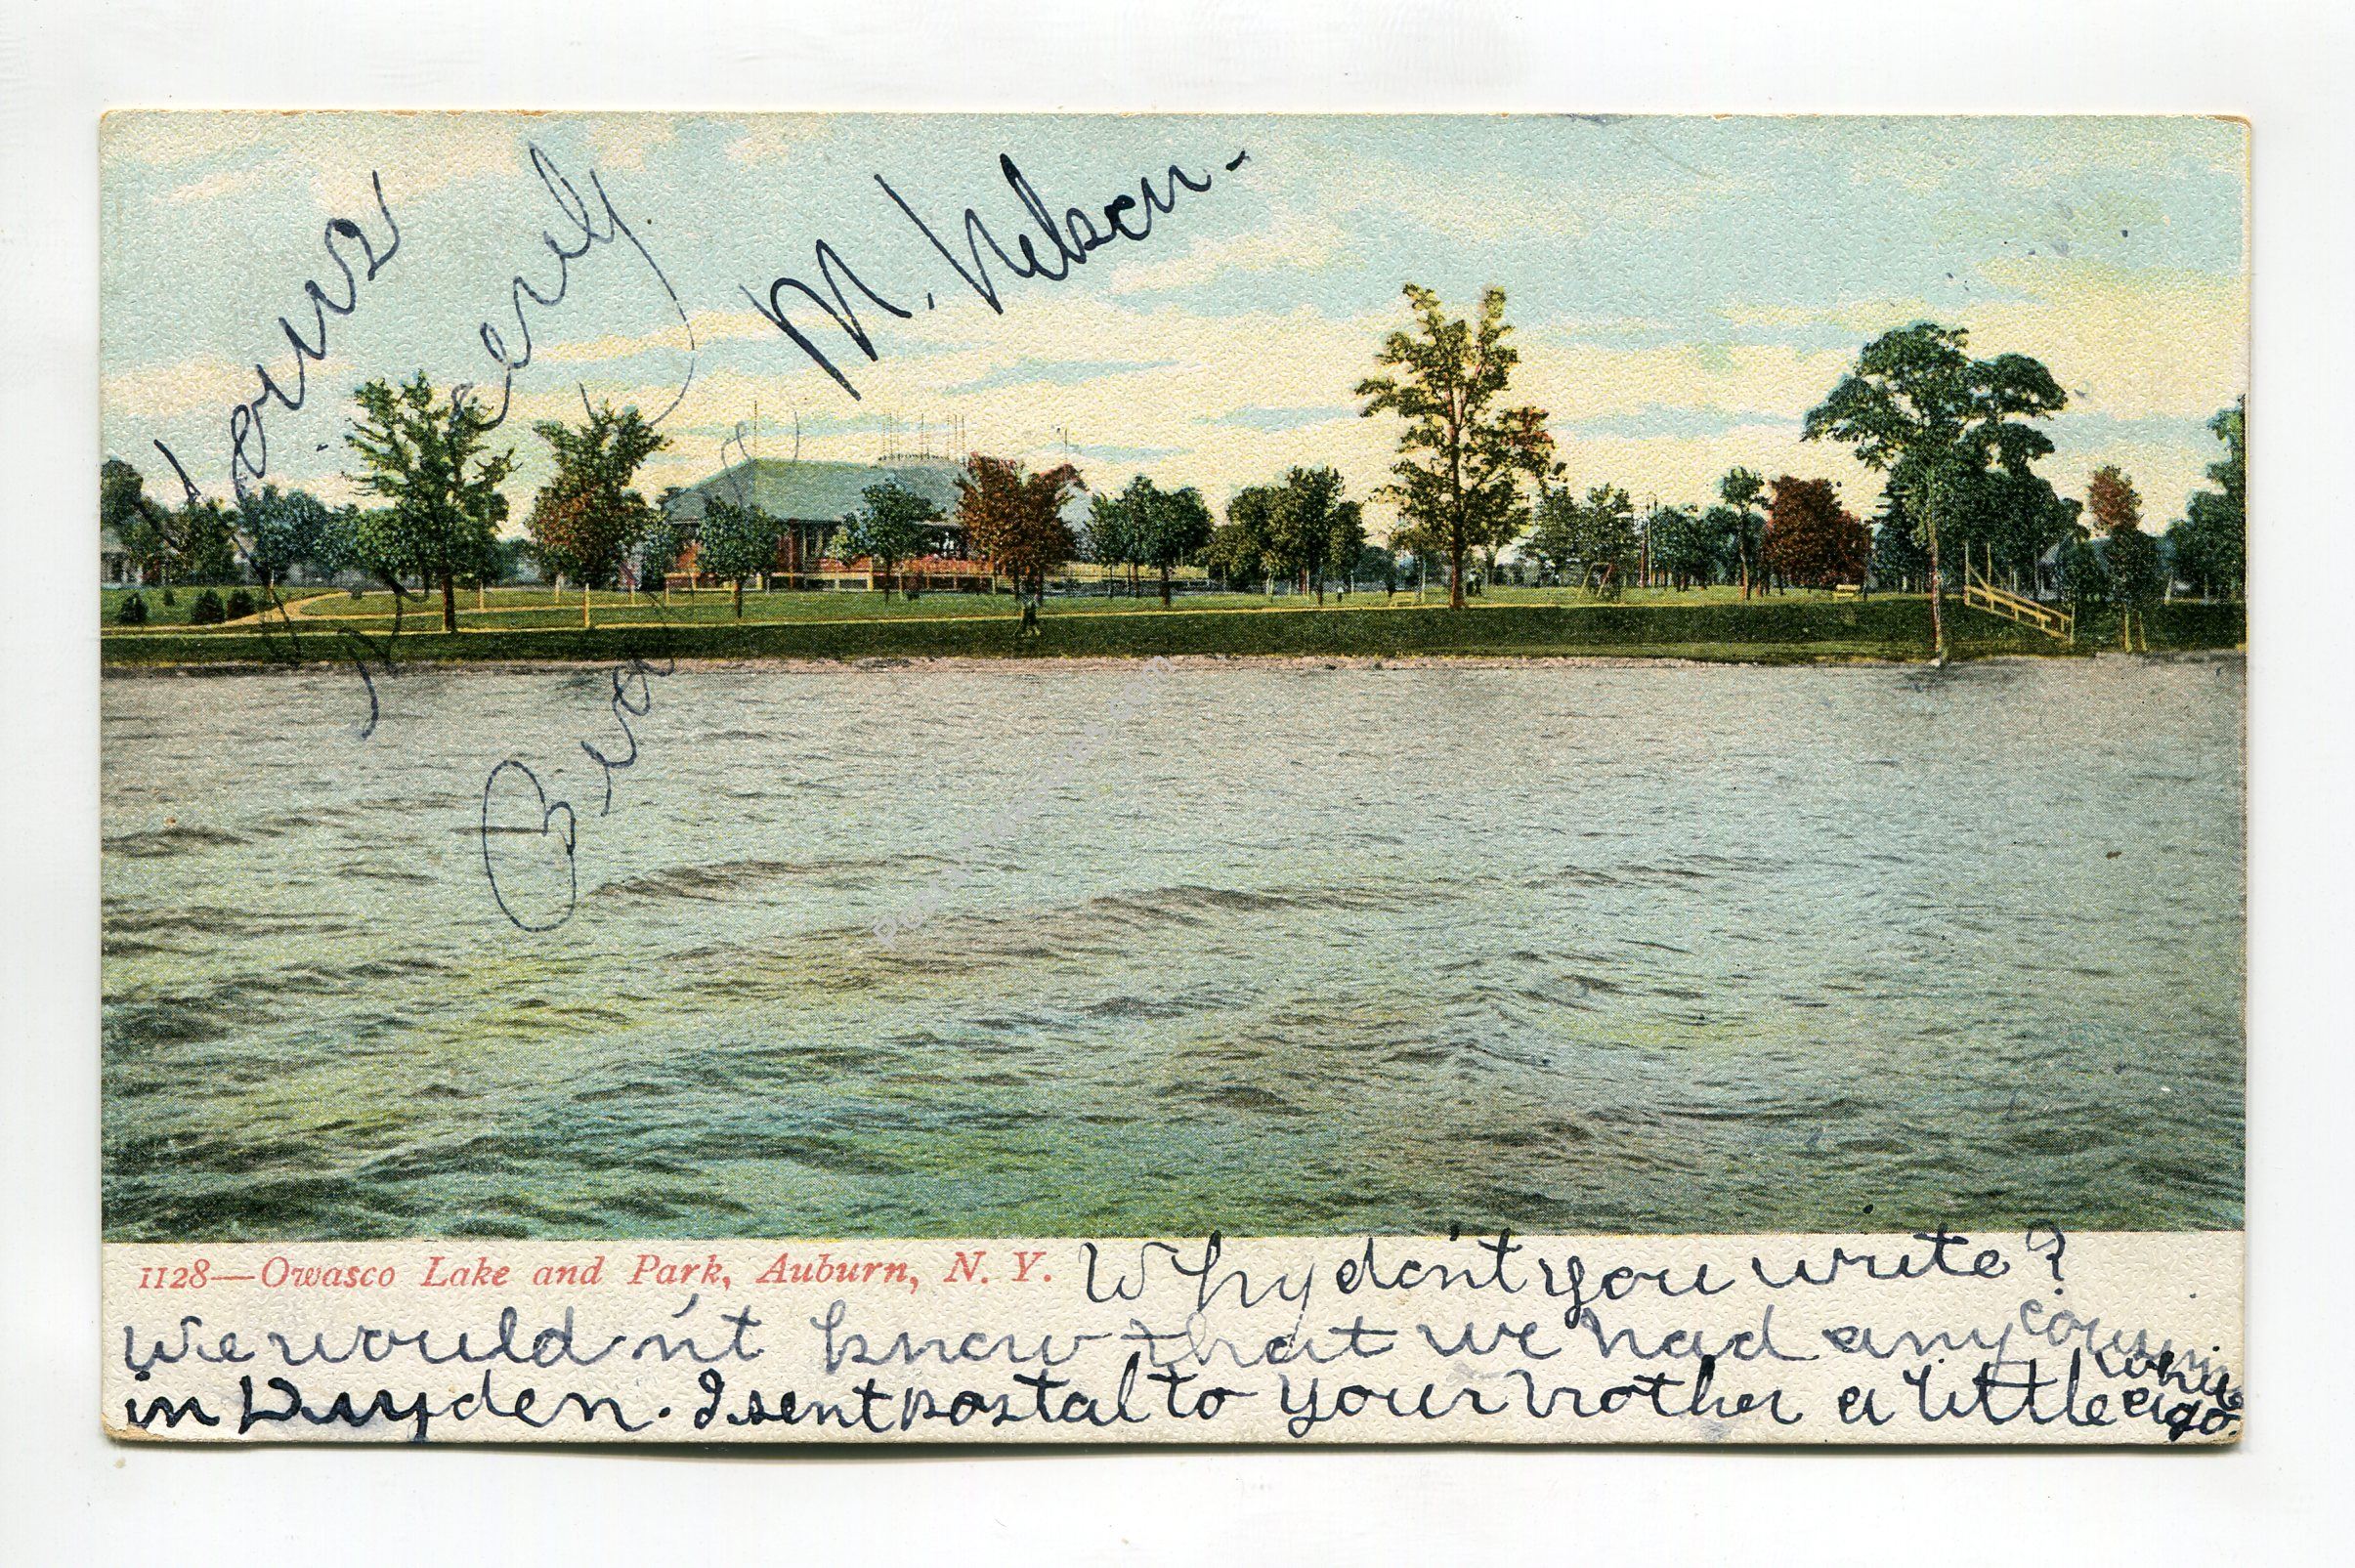 Yours
M. Nelson -
1128—Owasco Lake and Park, Auburn, N. Y.
Why don't you write?
We would n't know that we had any cousins
in Dryden. I sent postal to your Mother a little while ago.